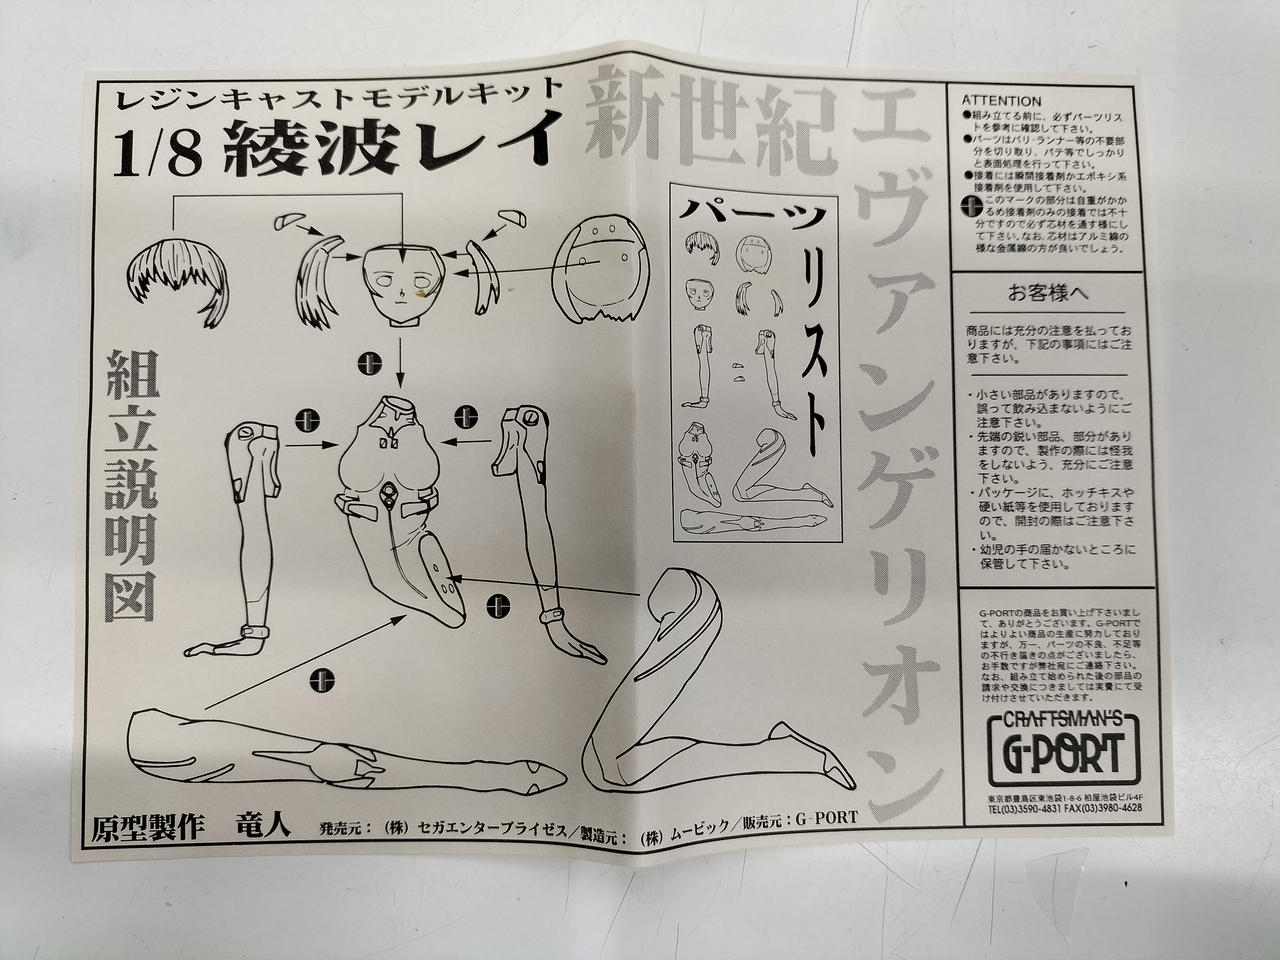 レジンキャストモデルキット
1/8 綾波レイ
新世紀
エヴァンゲリオン
組立説明図
パーツリスト
原型製作　竜人
発売元：（株）セガエンタープライゼス／製造元：（株）ムービック／販売元：G-PORT
ATTENTION
●組み立てる前に、必ずパーツリス
トを参考に確認して下さい。
●パーツはバリ・ランナー等の不要部
分を切り取り、パテ等でしっかり
と表面処理を行って下さい。
●接着には瞬間接着剤かエポキシ系
接着剤を使用して下さい。
このマークの部分は自重がかか
るめ接着剤のみの接着では不十
分ですので必ず芯材を通す様にし
て下さい。なお、芯材はアルミ線の
様な金属線の方が良いでしょう。
お客様へ
商品には充分の注意を払ってお
りますが、下記の事項にはご注
意下さい。
・小さい部品がありますので、
誤って飲み込まないようにご
注意下さい。
・先端の鋭い部品、部分があり
ますので、製作の際には怪我
をしないよう、充分にご注意
下さい。
・パッケージに、ホッチキスや
硬い紙等を使用しております
ので、開封の際はご注意下さ
い。
・幼児の手の届かないところに
保管して下さい。
G-PORTの商品をお買い上げ下さいまし
て、ありがとうございます。G-PORTで
はよりよい商品の生産に努力しており
ますが、万一、パーツの不良、不足等
の不行き届きの点がございましたら、
お手数ですが弊社宛にご連絡下さい。
なお、組み立て始められた後の部品の
請求や交換につきましては実費にて受
け付けさせていただきます。
CRAFTSMAN'S
G-PORT
東京都豊島区東池袋1-8-6 柏屋池袋ビル4F
TEL(03)3590-4831 FAX(03)3980-4628